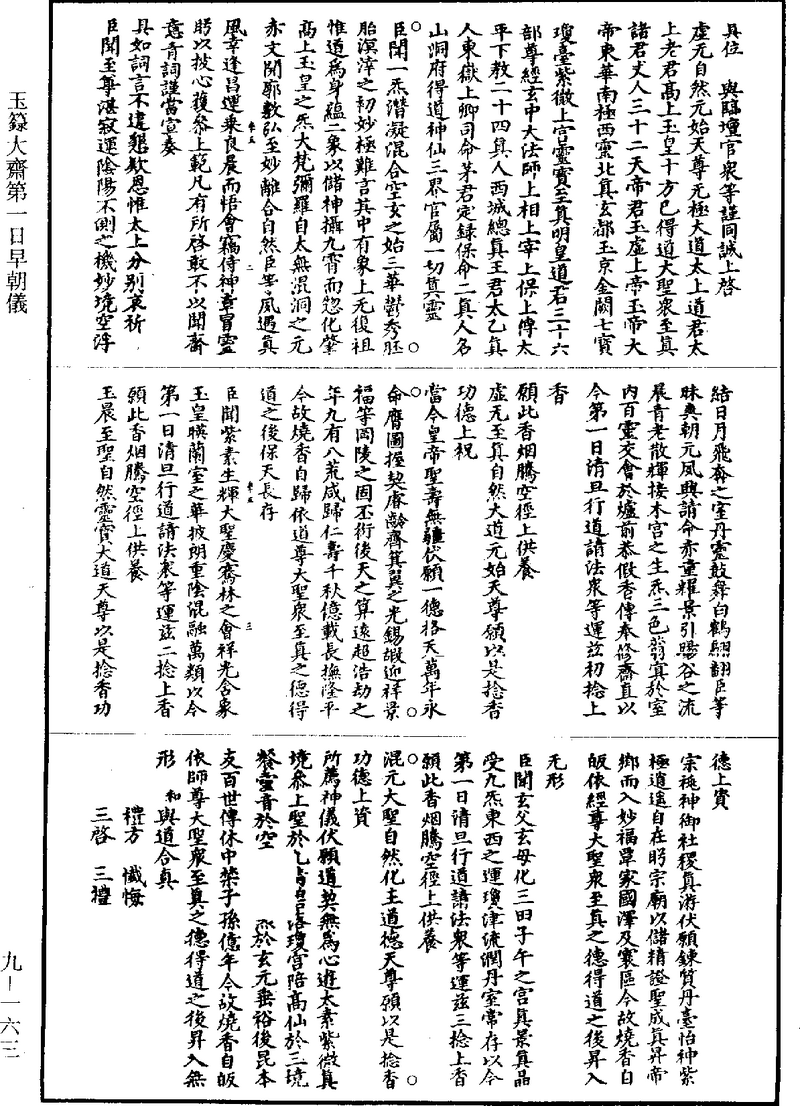 玉籙大齋第一日早朝儀
具位　與臨壇官衆等謹同誠上啓
虛无自然元始天尊无極大道太上道君太
上老君髙上玉皇十方已得道大聖衆至真
諸君丈人三十二天帝君玉虛上帝玉帝大
帝東華南極西靈北真玄都玉京金闕七寳
瓊臺紫微上宫靈寳至真明皇道君三十六
部尊經玄中大法師上相上宰上保上傅太
平下教二十四真人西城總真王君太乙真
人東嶽上卿司命茅君定録保命二真人名
山洞府得道神仙三界官屬一切真靈
臣聞一炁潛凝混合空玄之始三華鬱秀胚
胎溟涬之初妙極難言其中有象上无復祖
惟道爲身蘊二象以儲神攝九霄而惚化肇
髙上玉皇之炁大梵彌羅自太無混洞之元
赤文開廓敷弘至妙離合自然臣等夙遇真
風幸逢昌運乘良晨而悟會竊侍神章冒靈
眄以披心獲參上範凡有所啓敢不以聞齋
意青詞謹當宣奏
具如詞言不違懇款恩惟太上分别哀祈
臣聞至尊湛寂運陰陽不測之機妙境空浮
結日月飛奔之室丹鸞鼓舞白鶴翺翻臣等
昧爽朝元夙興請命赤童耀景引暘谷之流
晨青老散輝接木宫之生炁三色齋真於室
内百靈交會於爐前恭假香傳奉修齋直以
今第一日清旦行道請法衆等運兹初捻上
香
願此香烟騰空徑上供養
虛无至真自然大道元始天尊願以是捻香
功德上祝
當今皇帝聖壽無疆伏願一德格天萬年永
命膺圖握契睿齡齊箕翼之光錫嘏迎祥景
福等岡陵之固丕衍後天之算遠超浩劫之
年九有八荒咸歸仁壽千秋億載長撫隆平
今故燒香自歸依道尊大聖衆至真之德得
道之後保天長存
臣聞紫素生輝大聖慶騫林之會祥光含象
玉皇暎蘭室之華披朗重陰混融萬類以今
第一日清旦行道請法衆等運兹二捻上香
願此香烟騰空徑上供養
玉晨至聖自然靈寳大道天尊以是捻香功
德上資
宗祧神御社稷真游伏願鍊質丹臺怡神紫
極逍遥自在眄宗廟以儲精證聖成真昇帝
鄉而入妙福覃家國澤及寰區今故燒香自
皈依經尊大聖衆至真之德得道之後昇入
无形
臣聞玄父玄母化三田子午之宫真景真品
受九炁東西之運瓊津流潤丹室常存以今
第一日清旦行道請法衆等運兹三捻上香
願此香烟騰空徑上供養
混元大聖自然化主道德天尊願以是捻香
功德上資
所薦神儀伏願道契無爲心遊太素紫微真
境參上聖於 瓊宫陪髙仙於三境
餐靈音於空 炁於玄元垂裕後昆本
支百世傳休中禁子孫億年今故燒香自皈
依師尊大聖衆至真之德得道之後昇入無
形　和與道合真
禮方　懺悔
三啓　三禮
九—一六三